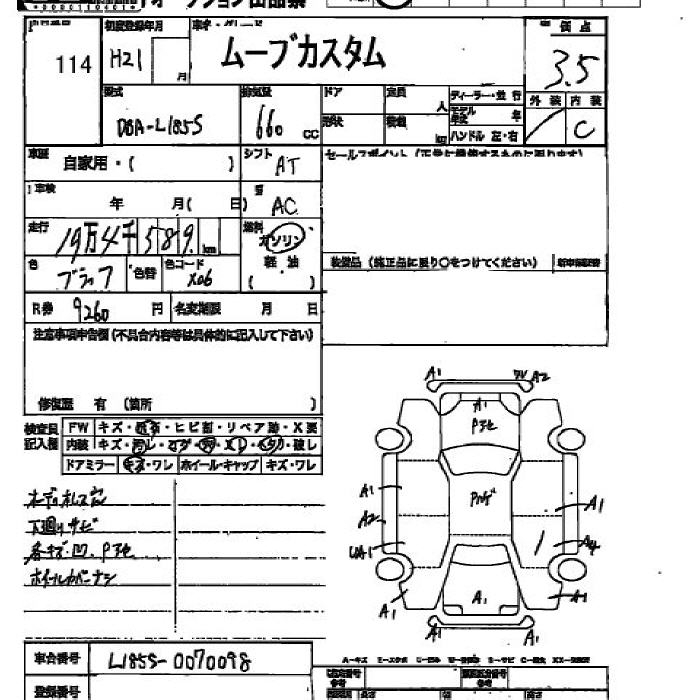 オークション出品票
114
初度登録年月
H21
月
車名・グレード
ムーブカスタム
評価点
3.5
外装 内装
C
型式
DBA-L185S
排気量
660 cc
ドア
形状
定員 人
積載 kg
ディーラー・並行
モデル年式 年
ハンドル 左・右
車歴
自家用・( )
シフト
AT
車検
年 月( 日)
AC
走行
19万4千589 km
燃料
ガソリン
軽油
( )
色
ブラック
色替
色コード
X06
R券 9260 円
名変期限 月 日
セールスポイント(正常に機能するものに限ります)
装備品(純正品に限り〇をつけてください)
注意事項申告欄(不具合内容等は具体的に記入して下さい)
修復歴 有 (箇所 )
検査員記入欄
FW キズ・飛石・ヒビ割・リペア跡・X要
内装 キズ・汚レ・コゲ・穴・スレ・ヘタリ・破レ
ドアミラー キズ・ワレ ホイール・キャップ キズ・ワレ
下廻りサビ
各キズ・凹、
A1 A2
A1
A1
A2
UA1
A1
A4
A1
A1 A1
A1 A1
車台番号
L185S-0070098
登録番号
A-キズ